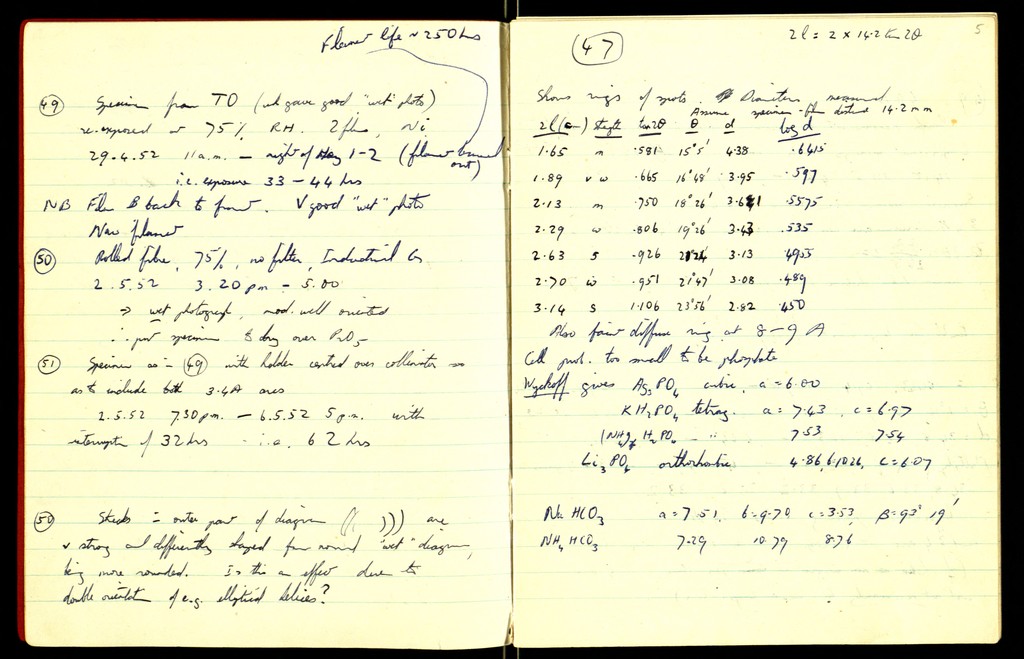 Filament life ~ 250 hrs
(49) Specimen from TO (wh gave good "wet" photo)
re-exposed at 75% R.H. 2 film, Ni
29.4.52 11 a.m. – night of May 1-2 (filament burned out)
i.e. exposure 33 – 44 hrs
NB Film B back to front. V good "wet" photo
New filament
(50) Rolled fibre, 75%, no filter, Industrial G
2.5.52 3.20 pm – 5.00
⇒ wet photograph, mod. well oriented
∴ put specimen to dry over P2O5
(51) Specimen as in (49) with holder centred over collimator so
as to include both 3.4A arcs
2.5.52 7.30 pm. – 6.5.52 5 p.m. with
interruption of 32 hrs i.e. 62 hrs
(50) Streaks in outer part of diagram (( ))) are
v strong and differently shaped from normal "wet" diagram,
being more rounded. Is this an effect due to
double orientation of e.g. elliptical helices?
5
(47)
2l = 2 × 14.2 tan 2θ
Shows rings of spots. Diameters measured
Assume specimen-film distance 14.2 mm
2l (cm) strength tan2θ θ d log d
1.65 m .581 15°5' 4.38 .6415
1.89 v w .665 16°48' 3.95 .597
2.13 m .750 18°26' 3.61 .5575
2.29 w .806 19°26' 3.43 .535
2.63 s .926 3.13 .4955
2.70 w .951 21°47' 3.08 .489
3.14 s 1.106 23°56' 2.82 .450
Also faint diffuse ring at 8–9 A
Cell prob. too small to be phosphate
Wyckoff gives Ag3PO4 cubic, a = 6.00
KH2PO4 tetrag. a = 7.43 c = 6.97
NH4 H2PO4 " 7.53 7.54
Li3PO4 orthorhombic 4.86, 6.1026, c = 6.07
Na HCO3 a = 7.51 b = 9.70 c = 3.53, β = 93° 19'
NH4 HCO3 7.29 10.79 8.76